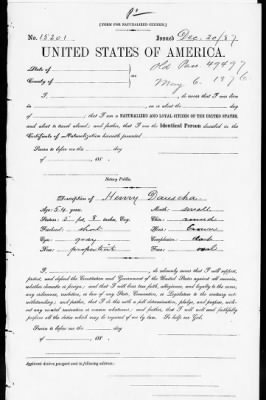 [FORM FOR NATURALIZED CITIZEN.]
No. 15201 Issued Dec. 20/87
UNITED STATES OF AMERICA.
State of
County of
ss:
Old Pass 49497
May 6. 1876
I, , do swear that I was born
in , on or about the day
of ; that I am a NATURALIZED AND LOYAL CITIZEN OF THE UNITED STATES,
and about to travel abroad; and further, that I am the Identical Person described in the
Certificate of Naturalization herewith presented
Sworn to before me this day
of 188 .
Notary Public.
Description of Henry
Age: 54 year. Mouth: small
Stature: 5 feet, 8 inches, Eng. Chin: round
Forehead: short Hair: brown
Eyes: gray Complexion: dark
Nose: Face: oval
I, , do solemnly swear that I will support,
protect, and defend the Constitution and Government of the United States against all enemies,
whether domestic or foreign; and that I will bear true faith, allegiance, and loyalty to the same,
any ordinance, resolution, or law of any State, Convention, or Legislature to the contrary not-
withstanding; and further, that I do this with a full determination, pledge, and purpose, with-
out any mental reservation or evasion whatsoever; and further, that I will well and faithfully
perform all the duties which may be required of me by law. So help me God.
Sworn to before me this day
of 188 .
Applicant desires passport sent to following address: